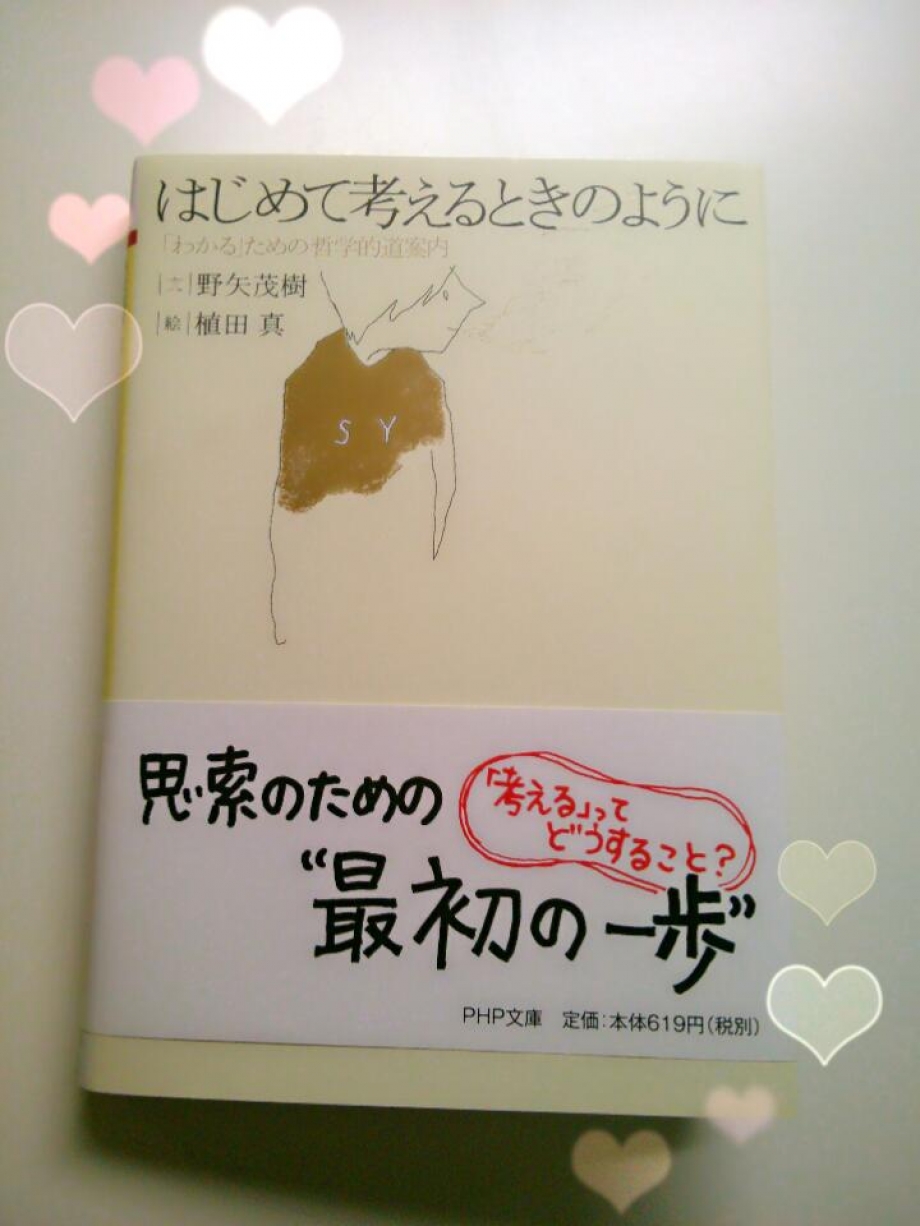 はじめて考えるときのように
「わかる」ための哲学的道案内
野矢茂樹
絵 植田 真
S Y
思索のための
「考える」って
どうすること?
“最初の一歩”
PHP文庫 定価:本体619円(税別)